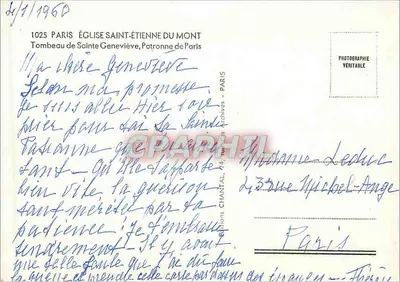 4/1/1960
1025 PARIS ÉGLISE SAINT-ÉTIENNE DU MONT
Tombeau de Sainte Geneviève, Patronne de Paris
PHOTOGRAPHIE
VÉRITABLE
Ma chère Geneviève
Selon ma promesse
Je suis allée Hier soir
prier pour toi ta Sainte
Patronne que
sant - Qu'elle t'apporte
bien vite la guérison
tant méritée par ta
patience! Je t'embrasse
tendrement. Il y avait
une telle foule que j'ai dû faire
la queue et prendre cette carte par dessus des
CPAPHIL
Editions CHANTAL, PARIS
Madame Leduc
43 rue Michel-Ange
Paris